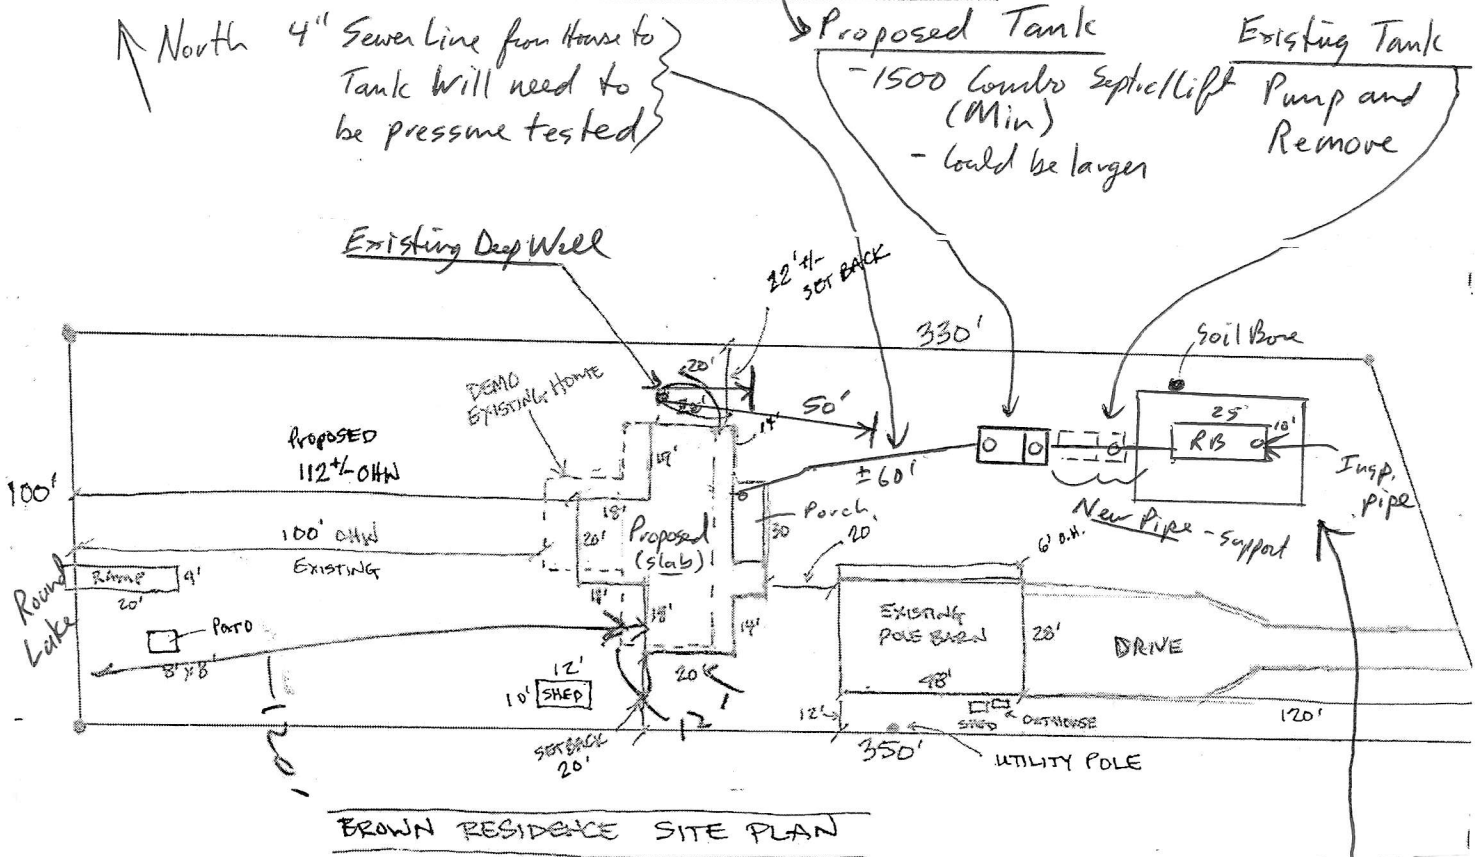 North
4" Sewer Line from House to
Tank Will need to
be pressure tested
Proposed Tank
- 1500 Combo Septic/Lift
(Min)
- Could be larger
Existing Tank
Pump and
Remove
Existing Deep Well
22' +/-
SET BACK
330'
Soil Bore
DEMO
EXISTING HOME
20'
50'
14'
25'
10'
RB
Insp.
pipe
Proposed
112 +/- OHW
19'
± 60'
100'
18'
20'
Proposed
(slab)
Porch
30
20'
New Pipe - Support
6' O.H.
100' OHW
EXISTING
Round
Lake
RAMP
9'
20'
EXISTING
POLE BARN
28'
DRIVE
18'
14'
PATO
8' x 8'
12'
10'
SHED
20'
48'
12'
SHED
OUTHOUSE
120'
12'
SETBACK
20'
350'
UTILITY POLE
120'
BROWN RESIDENCE SITE PLAN